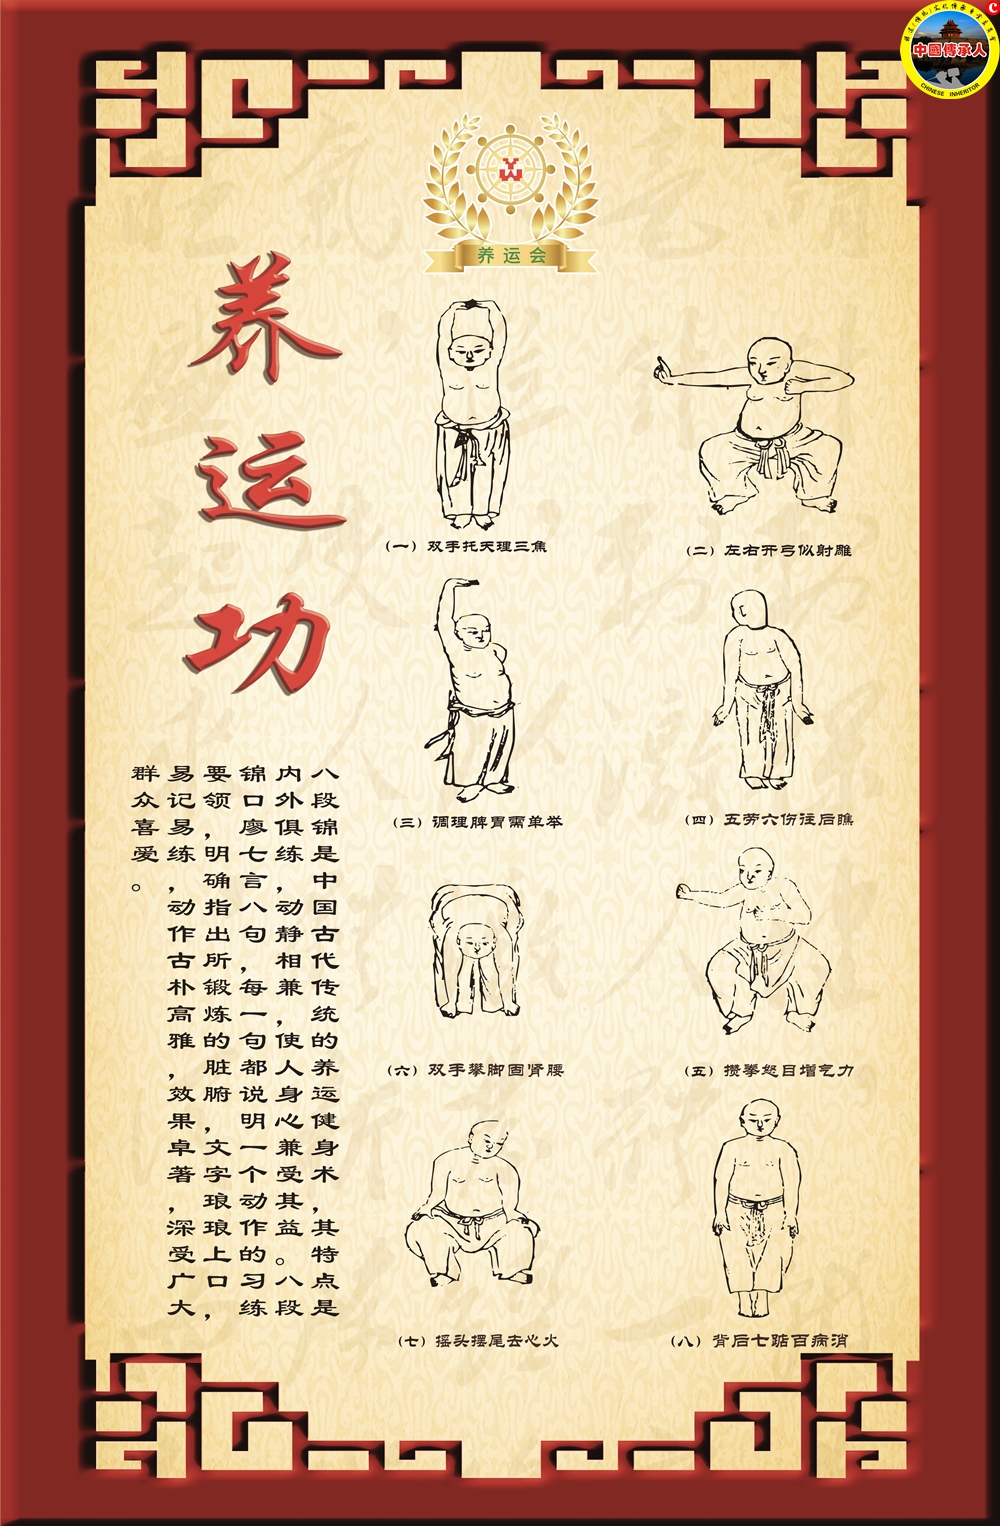 中國傳承人
CHINESE INHERITOR
养运会
养运功
(一) 双手托天理三焦
(二) 左右开弓似射雕
(三) 调理脾胃需单举
(四) 五劳六伤往后瞧
(六) 双手攀脚固肾腰
(五) 攒拳怒目增气力
(七) 摇头摆尾去心火
(八) 背后七踮百病消
八段锦是中国古代传统的养运健身术，其特点是
内外俱练，动静相兼，使人身心兼受其益。八段
锦口廖七言八句，每一句都说明一个动作的习练
要领，明确指出所锻炼的脏腑，文字琅琅上口，
易记易练，动作古朴高雅，效果卓著，深受广大
群众喜爱。